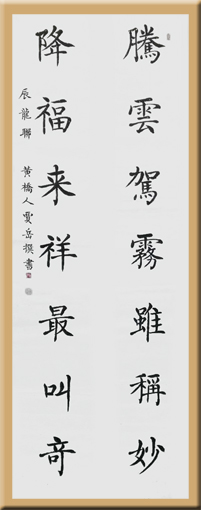 騰雲駕霧雖稱妙
降福来祥最叫奇
辰龍聯 黄橋人夏岳撰書